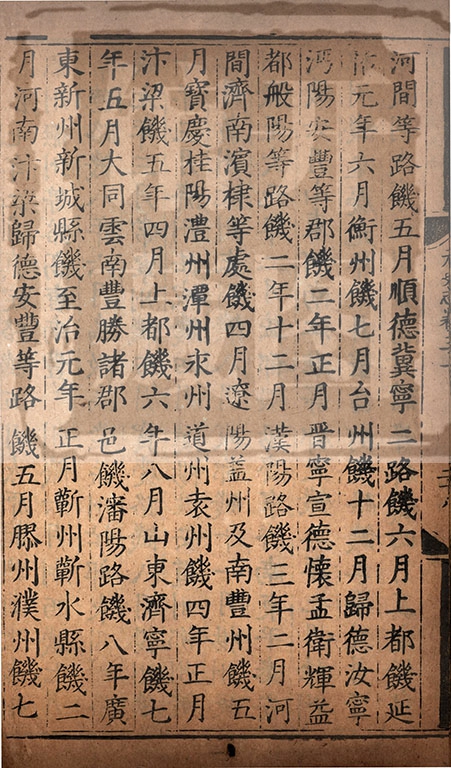 河間等路饑五月順德冀寧二路饑六月上都饑延
祐元年六月衡州饑七月台州饑十二月歸德汝寧
沔陽安豐等郡饑二年正月晉寧宣德懷孟衛輝益
都般陽等路饑二年十二月漢陽路饑三年二月河
間濟南濱棣等處饑四月遼陽蓋州及南豐州饑五
月寶慶桂陽澧州潭州永州道州袁州饑四年正月
汴梁饑五年四月上都饑六年八月山東濟寧饑七
年五月大同雲南豐勝諸郡邑饑瀋陽路饑八年廣
東新州新城縣饑至治元年正月蘄州蘄水縣饑二
月河南汴梁歸德安豐等路饑五月膠州濮州饑七